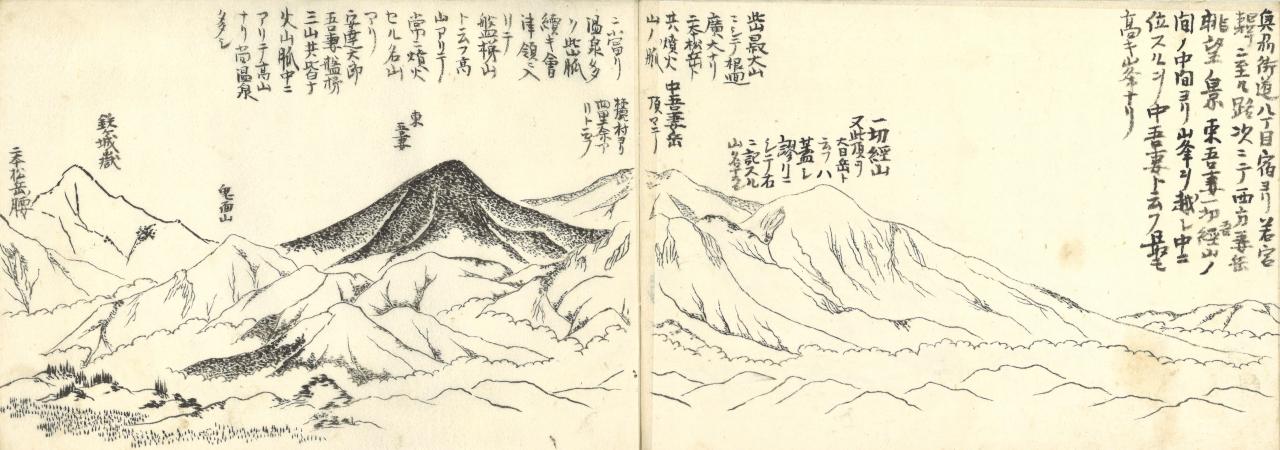 奥州街道八丁目宿ヨリ若宮
駅ニ至ル路次ニテ西方吾妻岳
眺望ノ景東吾妻一切経山ノ
間ノ中間ヨリ山峯ヲ越し中ニ
位スルヲ中吾妻ト云フ最モ
高キ山峯ナリ
一切經山
又此頂ヲ
大日岳ト
云フハ
蓋し
謬リニ
シテ石
ニ記スル
山名ナ
此最大山
ニシテ根廻
廣大ナリ
二本松岳ト
共ニ噴火
山ノ脈
中吾妻岳
頂マテ
檜原村ヨリ
四里余下
リト云フ
ニ當リ
温泉多
ク此山脈
續キ會
津領ニ入
リテ
盤梯山
ト云フ高
山アリテ
常ニ噴火
セル名山
アリ
安達太郎
吾妻盤梯
三山共皆ナ
火山脈中ニ
アリテ高山
ナリ尚温泉
多し
東
吾妻
鬼面山
鉄城嶽
二本松岳腰